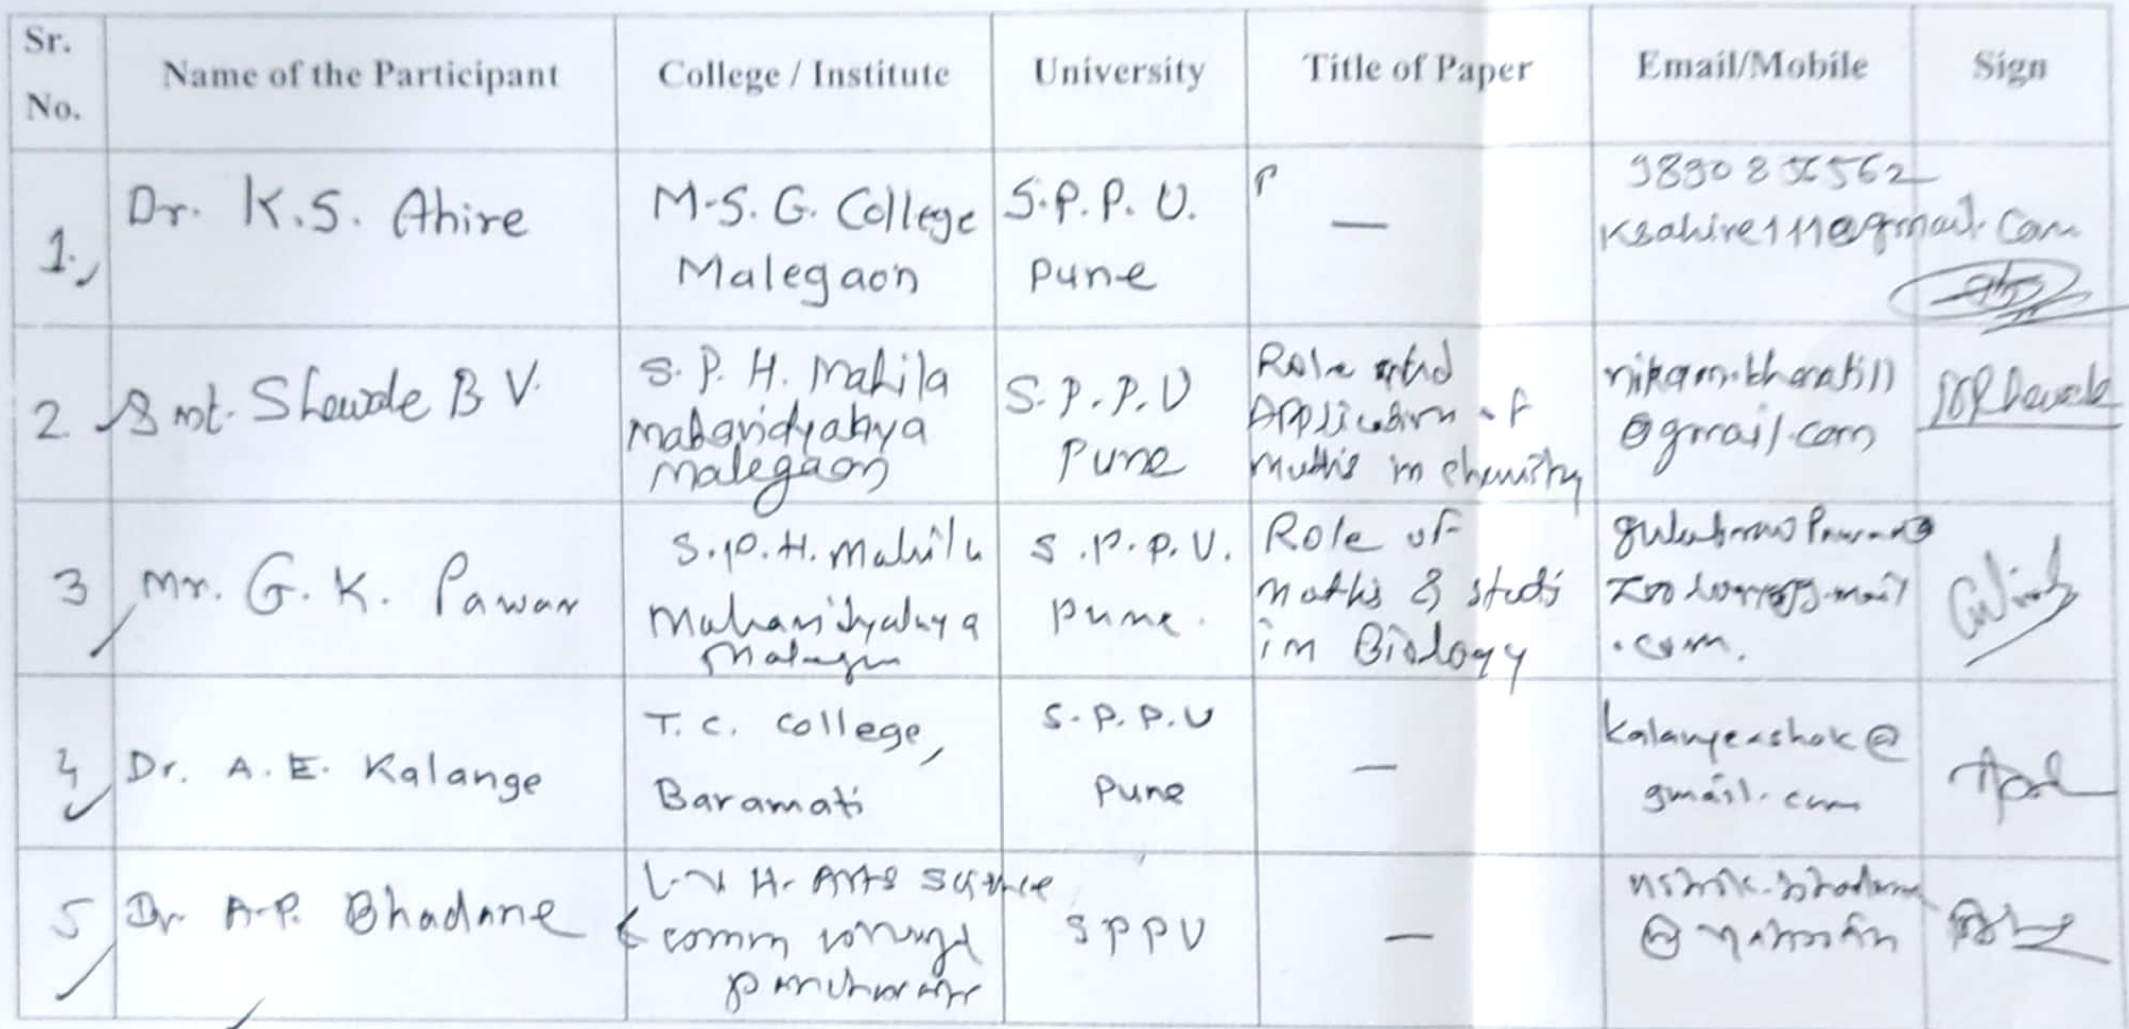 Sr. No. Name of the Participant College / Institute University Title of Paper Email/Mobile Sign
1. Dr. K.S. Ahire M.S.G. College Malegaon S.P.P.U. Pune — ksahire111@gmail.com
2 Smt. Shewale B V. S.P.H. Mahila Mahavidyalaya Malegaon S.P.P.U Pune Role and Application of Maths in chemistry nikam.bharati11 @gmail.com
3 Mr. G. K. Pawar S.P.H. Mahila Mahavidyalaya Malegaon S.P.P.U. Pune. Role of Maths & stats in Biology .com.
4 Dr. A.E. Kalange T.C. College, Baramati S.P.P.U Pune — kalangeashok@ gmail.com
5 Dr. A.P. Bhadane L.V.H. Arts Science & comm SPPU —